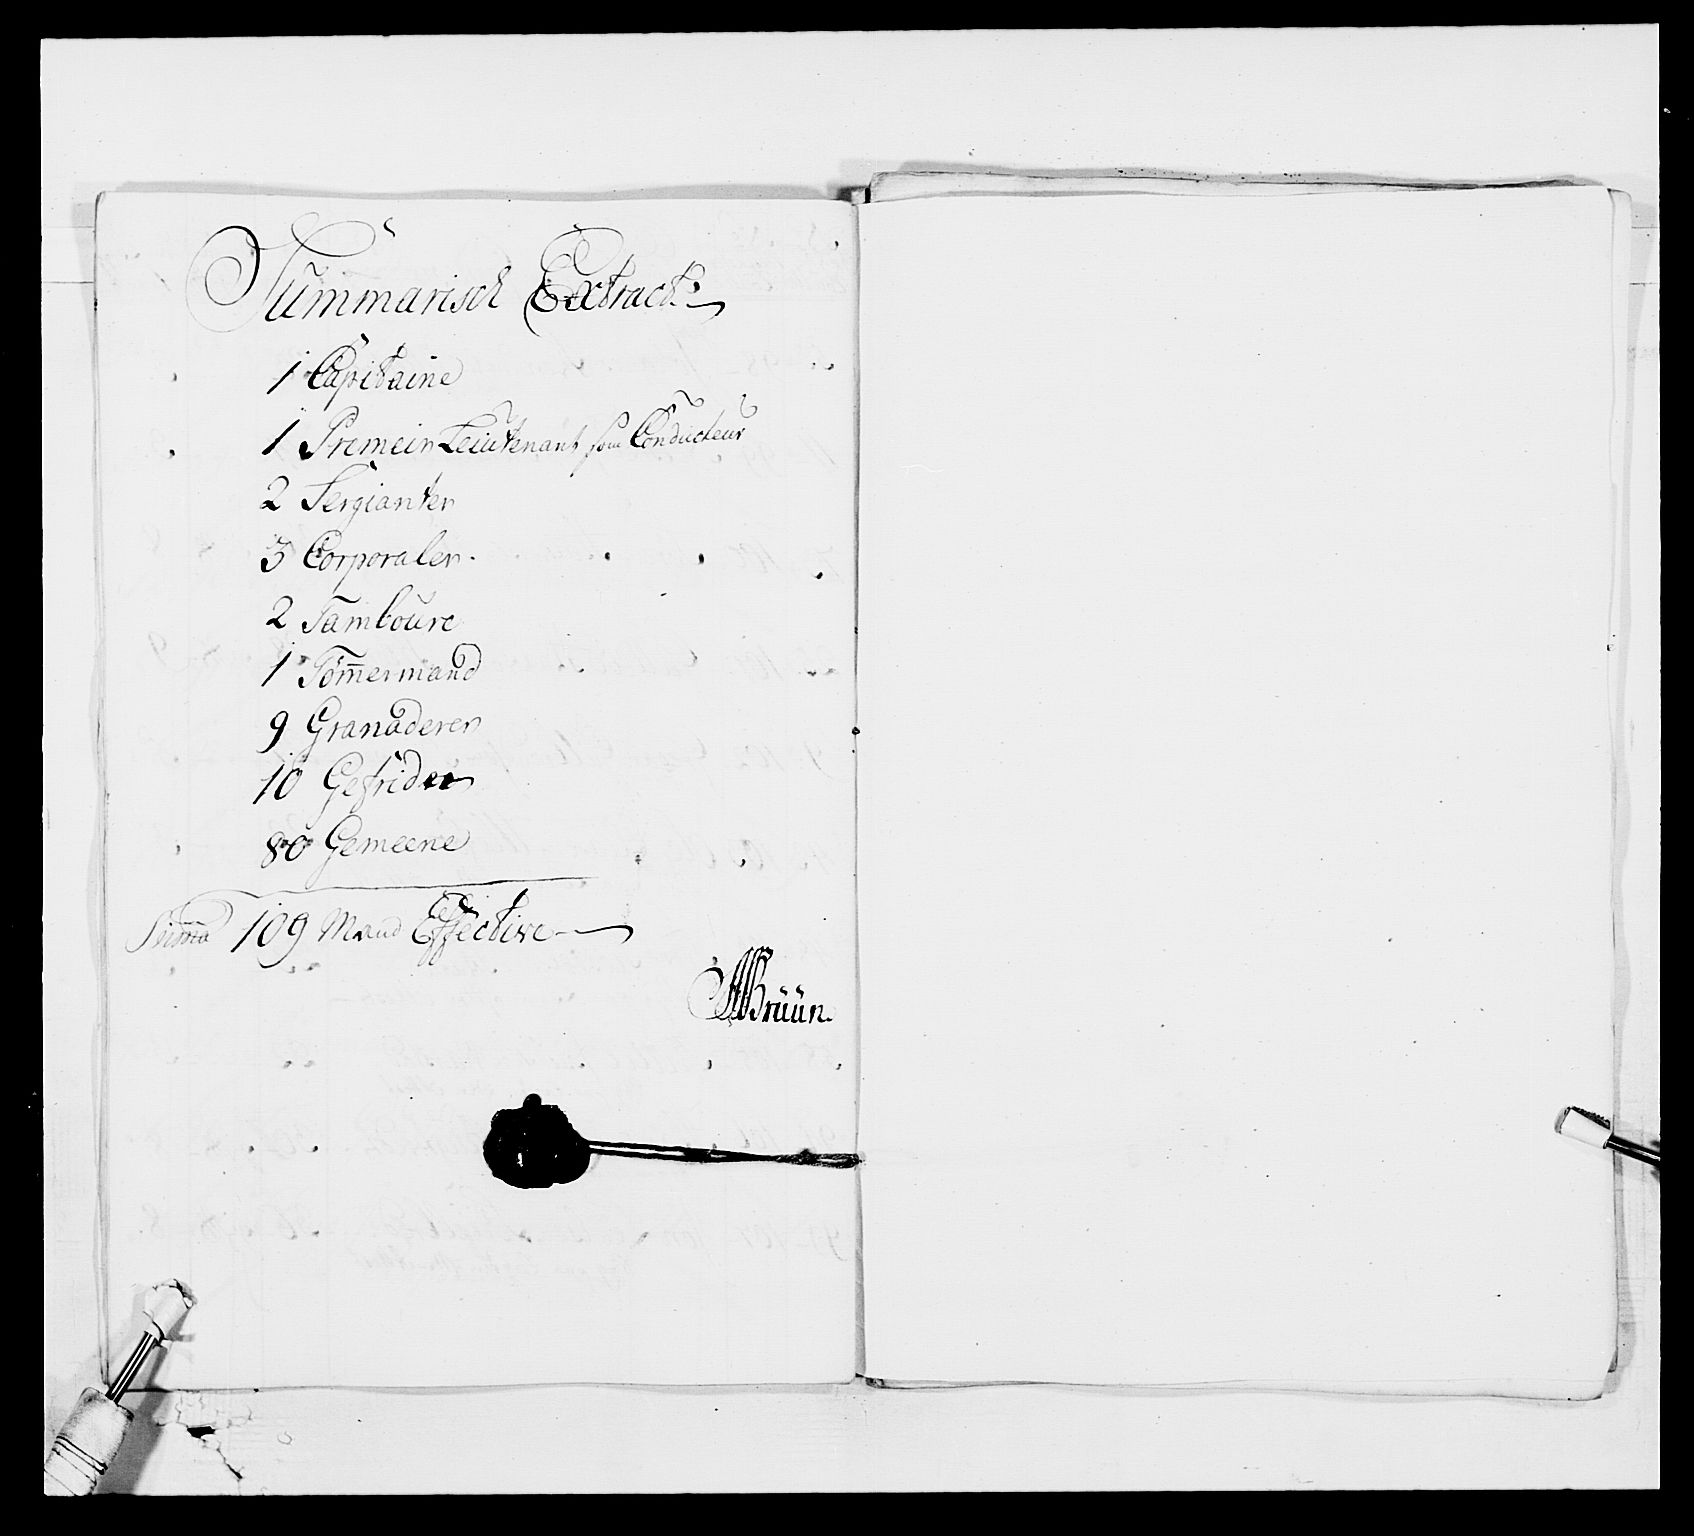 Summarisch Extract
1 Capitaine
1 Premeir Leiutenant som Conducteur
2 Sergianter
3 Corporaler.
2 Tamboure
1 Töm̄ermand
9 Granaderer
10 Gefrider
80 Gemeene
Sum̄a 109 Mand Effective
Brüün.